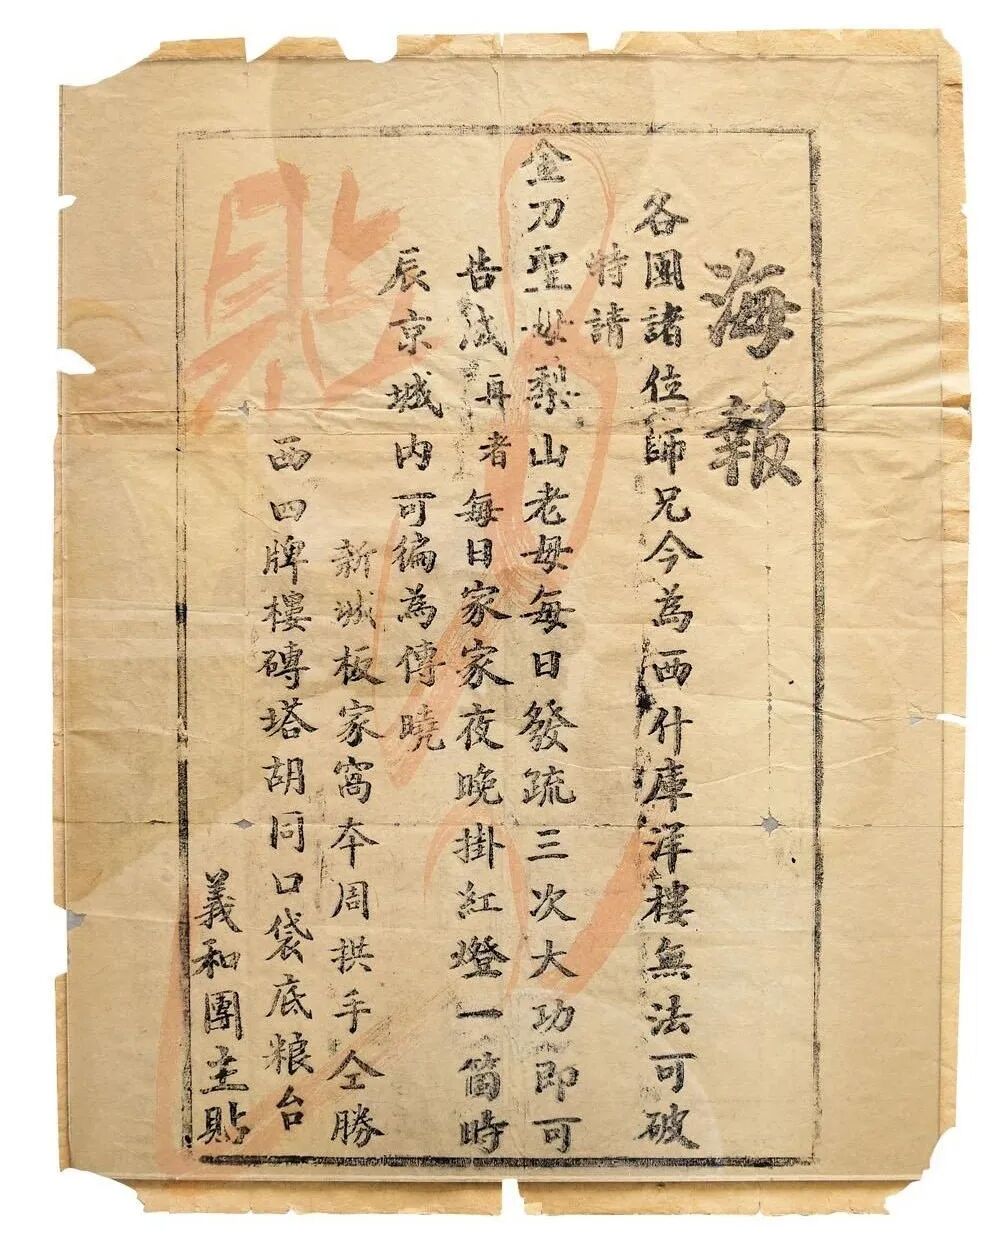 海報
各團諸位師兄今為西什庫洋樓無法可破
特請
金刀聖母梨山老母每日發疏三次大功即可
告成再者每日家家夜晚掛紅燈一箇時
辰京城內可徧為傳曉
新城板家窩本周拱手仝勝
西四牌樓磚塔胡同口袋底粮台
義和團主貼
貼